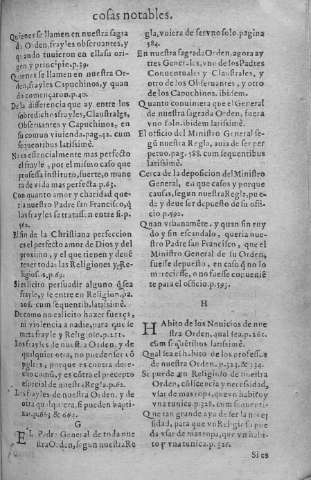 cosas notables.
Quienes se llamen en nuestra sagra
da Orden, frayles obseruantes, y
quando tuuieron en ella su ori
gen y principio. p.39.
Quienes se llamen en nuestra Or-
den, frayles Capuchinos, y quan
do començaron. p.40.
De la differencia que ay entre los
sobredichos frayles, Claustrales,
Obseruantes y Capuchinos, en
su comun viuienda. pag.42. cum
sequentibus latissimè.
Si es essencialmente mas perfecto
el frayle, por el mismo caso que
professa instituto, fuerte, o mane
ra de vida mas perfecta. p.65.
Con quanto amor y charidad que-
ria nuestro Padre san Francisco, q̃
las frayles se tratassen entre si. p.
El fin de la Christiana perfeccion
es el perfecto amor de Dios y del
proximo, y el que tienen y deuẽ
tener todas las Religiones y Re-
ligiosos. p.69.
Si es licito persuadir alguno q̃ sea
frayle, y se entre en Religion. pa.
cum sequentibus latissimè.
De como no es licito hazer fuerça,
ni violencia a nadie, para que se
meta frayle y Religioso. p.121.
Los frayles de nuestra Orden, y de
qualquier otra, no pueden ser cõ
padres, porque es contra dere-
cho comũ, y es contra el precepto
especial de nuestra Regla. p.662.
Los frayles de nuestra Orden, y de
otra qualquiera, si pueden bapti-
zar. p.663. & 664.
G
EL Padre General de toda nue
stra Orden, segun nuestra Re
gla, vuiera de ser vno solo. pagina
584.
En nuestra sagrada Orden, agora ay
tres Generales, vno de los Padres
Conuentuales y Claustrales, y
otro de los Obseruantes, y otro
de los Capuchinos. ibidem.
Quanto conuiniera que el General
de nuestra sagrada Orden, fuera
vno solo. ibidem latissimè.
El officio del Ministro General se-
gũ nuestra Regla, auia de ser per
petuo. pag.588. cum sequentibus
latissimè.
Cerca de la deposicion del Ministro
General, en que casos y porque
causas, segun nuestra Regla, pue-
de y deue ser depuesto de su offi-
cio. p.592.
Quan vfanamẽte, y quan sin ruy
do y sin escandalo, queria nue-
stro Padre san Francisco, que el
Ministro General de su Orden,
fuesse depuesto, en caso q̃ no lo
mereciesse, o no fuesse conueniẽ
te para el officio. p.595.
H
HAbito de los Nouicios de nue
stra Orden, qual sea. p.261.
cum sequentibus latissimè.
Qual sea el habito de los professos
de nuestra Orden. p.323. & 324.
Si puede a vn Religioso de nuestra
Orden, cõ licencia y necessidad,
vsar de mas ropa, que vn habito y
vna tunica. p.328. cum sequentib.
Que tan grande aya de ser la neces
sidad, para que vn Religioso pue
da vsar de mas ropa, que vn habi-
to y vna tunica. p.328.
Si es